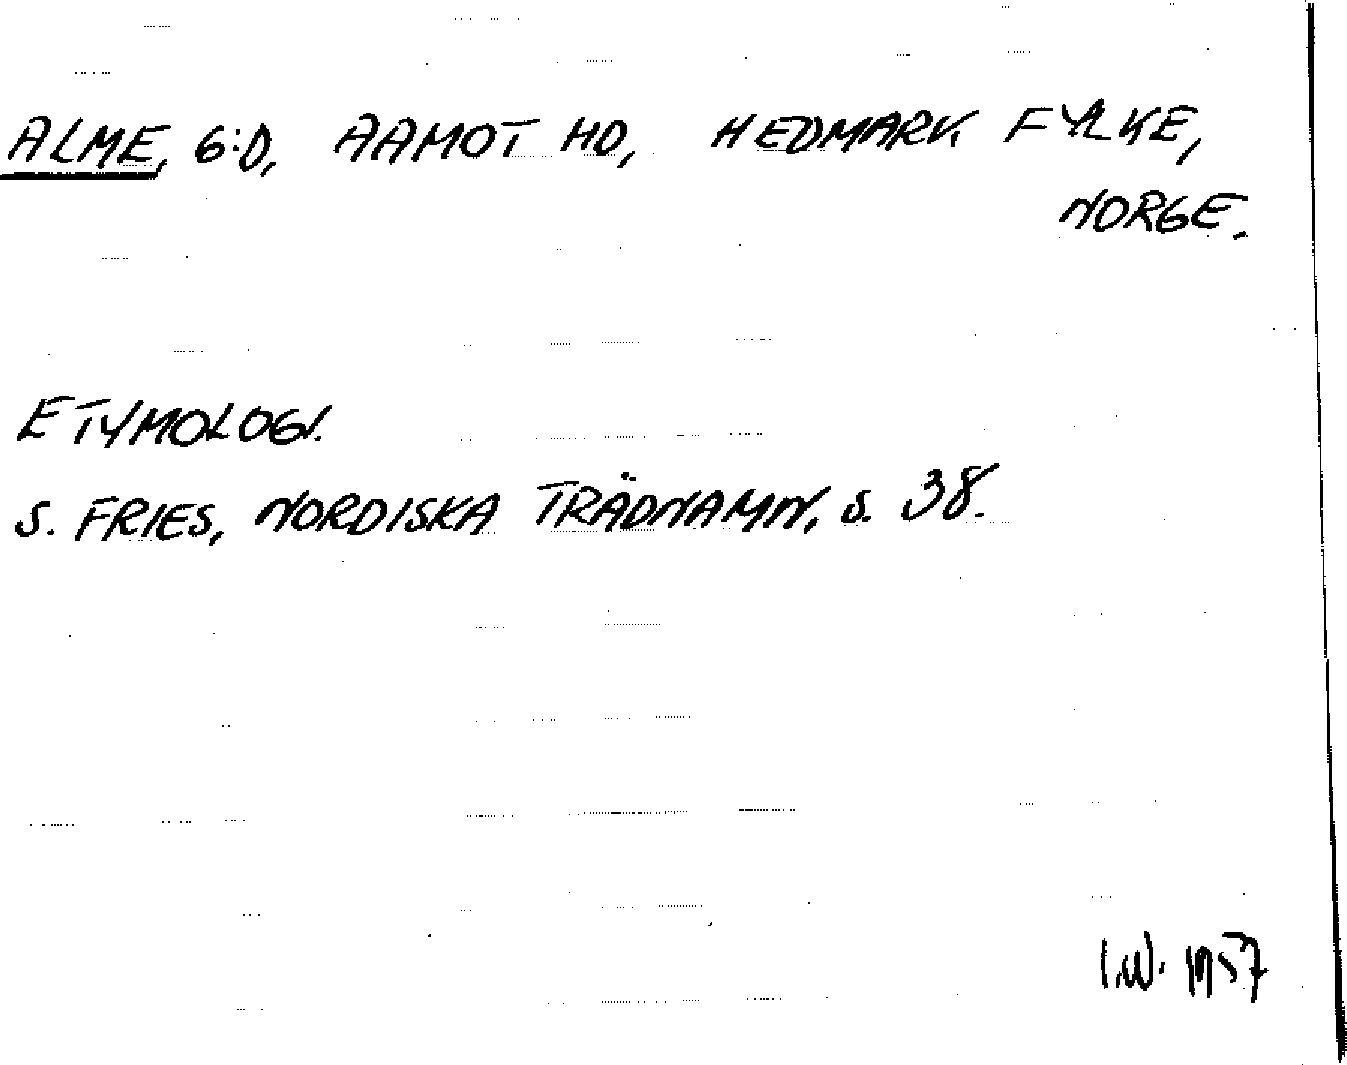 ALME, G:D, AAMOT HD, HEDMARK FYLKE,
NORGE.
ETYMOLOGI.
S. FRIES, NORDISKA TRÄDNAMN, s. 38.
I.W. 1957